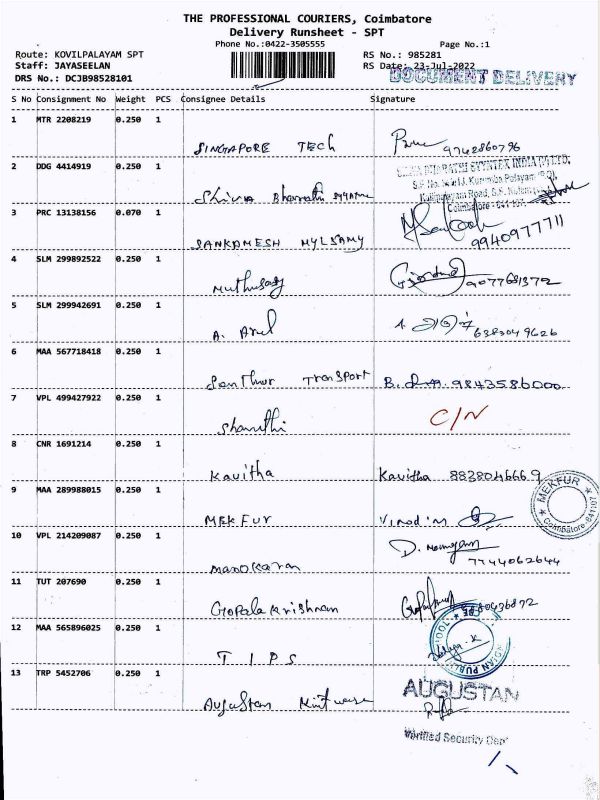 THE PROFESSIONAL COURIERS, Coimbatore
Delivery Runsheet - SPT
Phone No.:0422-3505555 Page No.:1
Route: KOVILPALAYAM SPT RS No.: 985281
Staff: JAYASEELAN RS Date: 23-Jul-2022
DRS No.: DCJB98528101 DOCUMENT DELIVERY
S No Consignment No Weight PCS Consignee Details Signature
1 MTR 2208219 0.250 1
SINGAPORE TECH 9742860796
2 DDG 4414919 0.250 1
Shiva Bharathi
Coimbatore - 641 107.
3 PRC 13138156 0.070 1
SANKAMESH MYLSAMY 9940977711
4 SLM 299892522 0.250 1
Muthusamy 9077681372
5 SLM 299942691 0.250 1
A. Arul 6383049626
6 MAA 567718418 0.250 1
Senthur Transport 9843586000
7 VPL 499427922 0.250 1
Shanthi C/N
8 CNR 1691214 0.250 1
Kavitha Kavitha 8838046669
9 MAA 289988015 0.250 1
MEKFUR Vinodin
MEKFUR
Coimbatore-641107
10 VPL 214209087 0.250 1
Manokaran 7744062644
11 TUT 207690 0.250 1
Gopalakrishnan
12 MAA 565896025 0.250 1
T I P S
13 TRP 5452706 0.250 1
Augustan Knitwear
AUGUSTAN
Verified Security